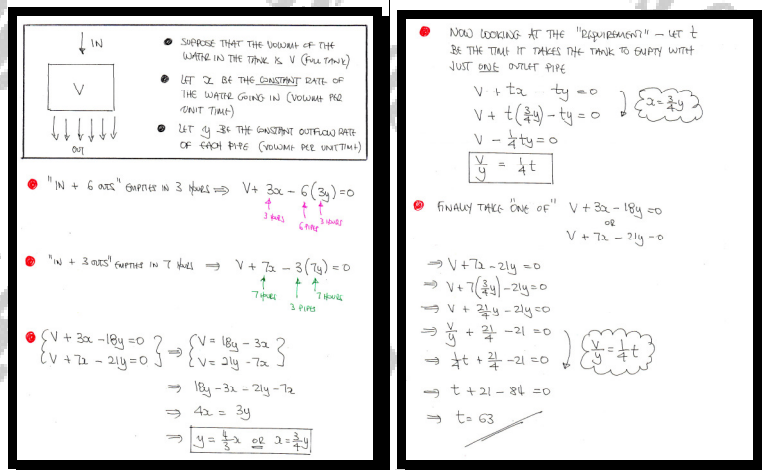 IN
V
OUT
SUPPOSE THAT THE VOLUME OF THE
WATER IN THE TANK IS V (FULL TANK)
LET x BE THE CONSTANT RATE OF
THE WATER GOING IN (VOLUME PER
UNIT TIME)
LET y BE THE CONSTANT OUTFLOW RATE
OF EACH PIPE (VOLUME PER UNIT TIME)
"IN + 6 OUTS" EMPTIES IN 3 HOURS ⇒ V + 3x - 6(3y) = 0
3 HOURS
6 PIPES
3 HOURS
"IN + 3 OUTS" EMPTIES IN 7 HOURS ⇒ V + 7x - 3(7y) = 0
7 HOURS
3 PIPES
7 HOURS
{V + 3x - 18y = 0
V + 7x - 21y = 0} ⇒ {V = 18y - 3x
V = 21y - 7x}
⇒ 18y - 3x - 21y - 7x
⇒ 4x = 3y
⇒ y = 4/3 x OR x = 3/4 y
NOW LOOKING AT THE "REQUIREMENT" - LET t
BE THE TIME IT TAKES THE TANK TO EMPTY WITH
JUST ONE OUTLET PIPE
V + tx ty = 0
V + t(3/4 y) - ty = 0
x = 3/4 y
V - 1/4 ty = 0
V/y = 1/4 t
FINALLY TAKE "ONE OF" V + 3x - 18y = 0
OR
V + 7x - 21y = 0
⇒ V + 7x - 21y = 0
⇒ V + 7(3/4 y) - 21y = 0
⇒ V + 21/4 y - 21y = 0
⇒ V/y + 21/4 - 21 = 0
V/y = 1/4 t
⇒ 1/4 t + 21/4 - 21 = 0
⇒ t + 21 - 84 = 0
⇒ t = 63